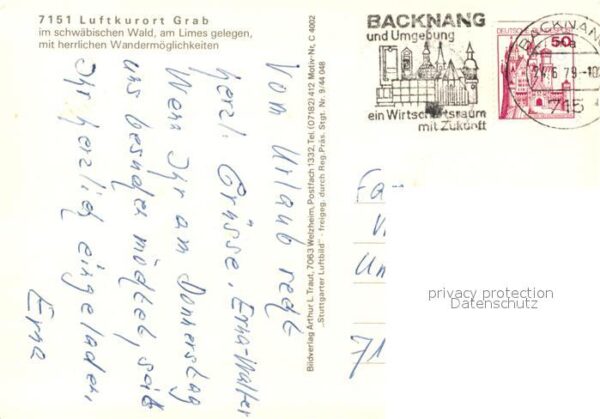 7151 Luftkurort Grab
im schwäbischen Wald, am Limes gelegen,
mit herrlichen Wandermöglichkeiten
Vom Urlaub recht
herzl. Grüsse, Erna-Walter
Wenn Ihr am Donnerstag
uns besuchen möchtet, seit
Ihr herzlich eingeladen.
Erna
Bildverlag Arthur L. Traut, 7063 Welzheim, Postfach 1332, Tel. (07182) 412 Motiv-Nr. C 4002
„Stuttgarter Luftbild" - freigeg. durch Reg.Präs. Stgt. Nr. 9.44 048
BACKNANG
und Umgebung
ein Wirtschaftsraum
mit Zukunft
DEUTSCHE BUNDESPOST
50
BACKNANG
79
715
Fa
Un
71
privacy protection
Datenschutz